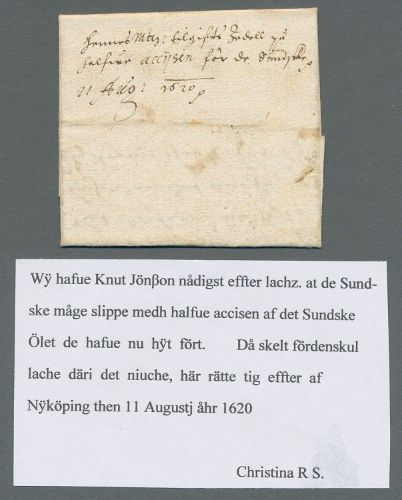 Hennes Mtz: tilgifts Zedell på
halfwe accijsen för de Sundske
11 Aug: 1620
Wÿ hafue Knut Jönßon nådigst effter lachz. at de Sund-
ske måge slippe medh halfue accisen af det Sundske
Ölet de hafue nu hÿt fört. Då skelt fördenskul
lache däri det niuche, här rätte tig effter af
Nÿköping then 11 Augustj åhr 1620
Christina R S.